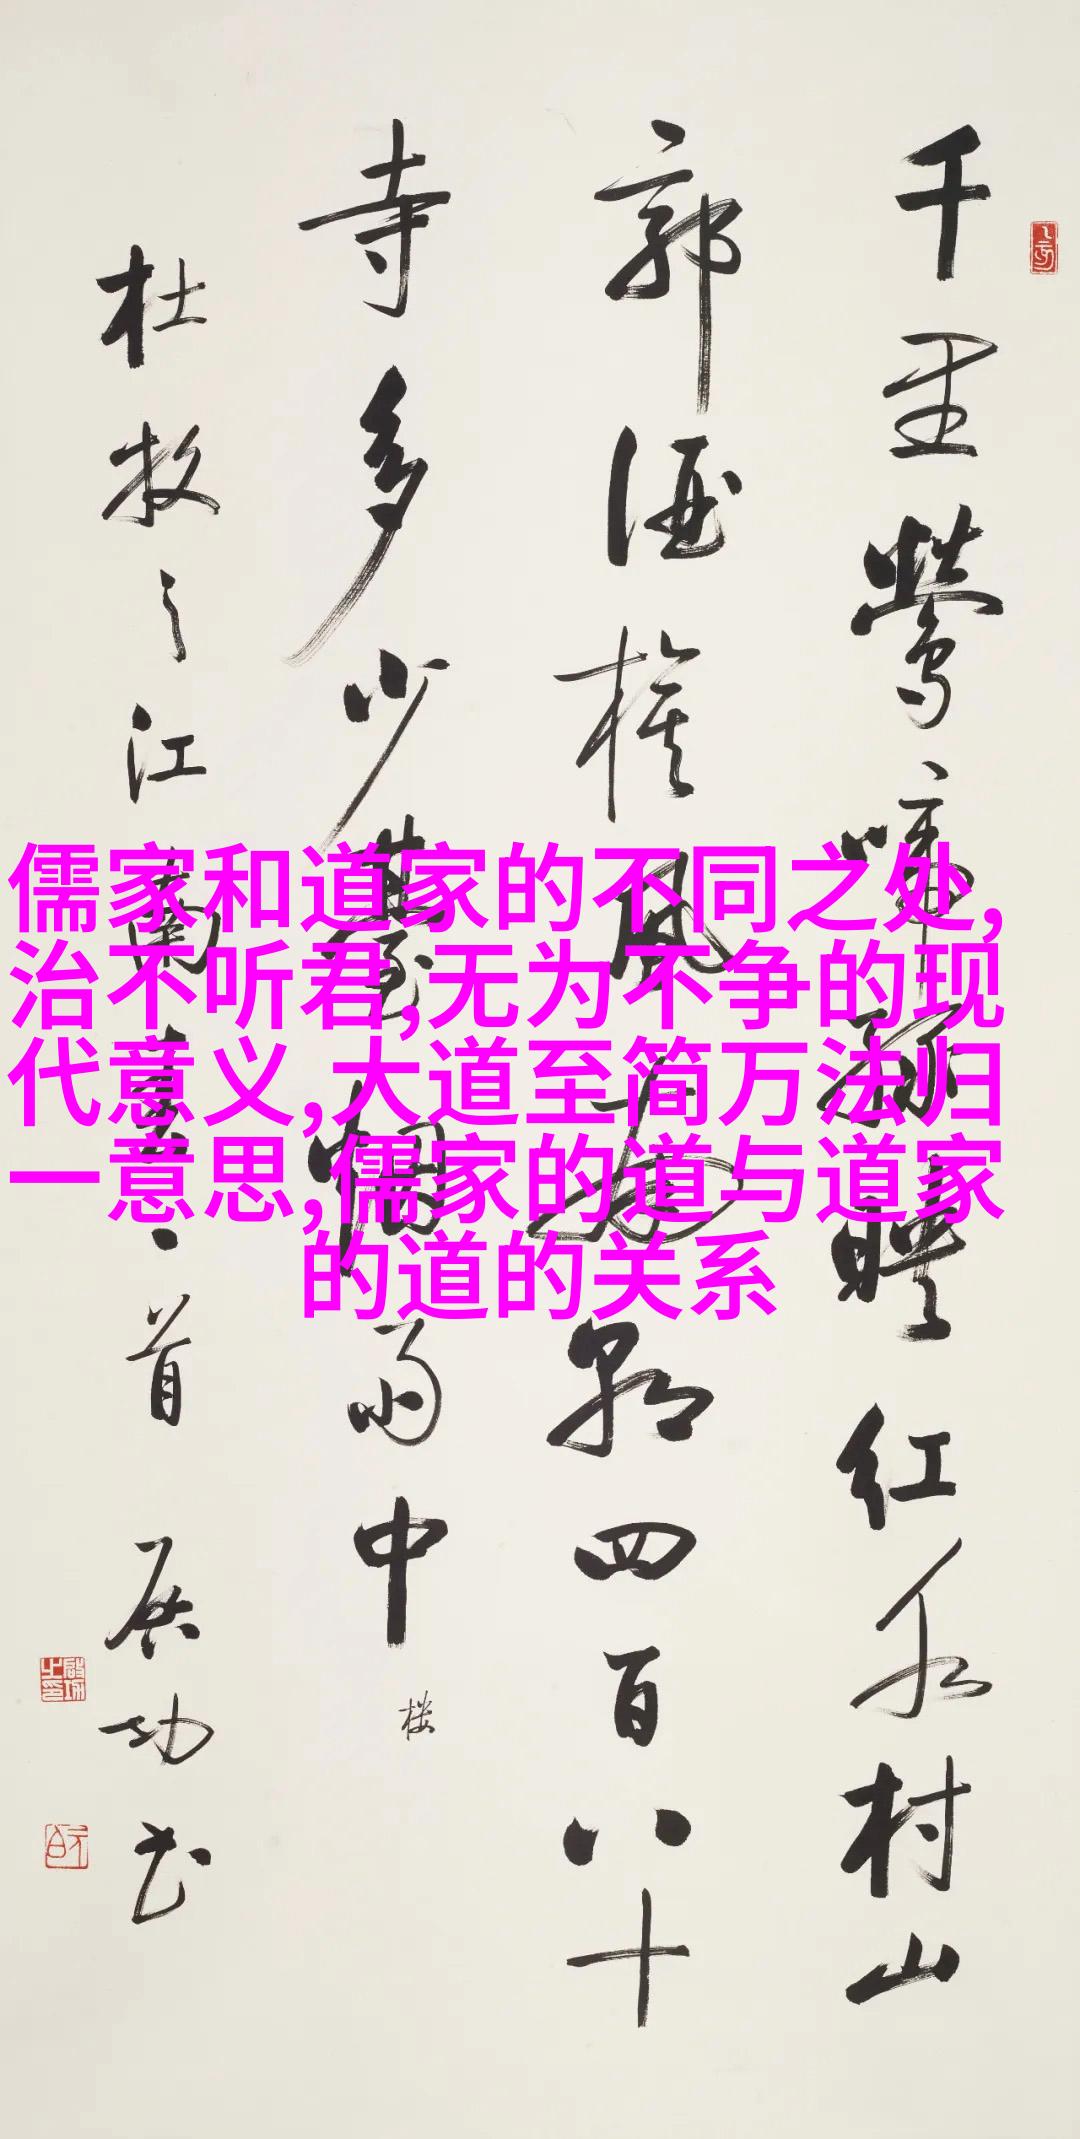 千里鶯啼綠映紅水村山
郭酒旗風南朝四百八十
寺多少臺烟雨中
楼
杜牧之江南春一首 启功书
儒家和道家的不同之处,
治不听君,无为不争的现
代意义,大道至简万法归
一意思,儒家的道与道家
的道的关系